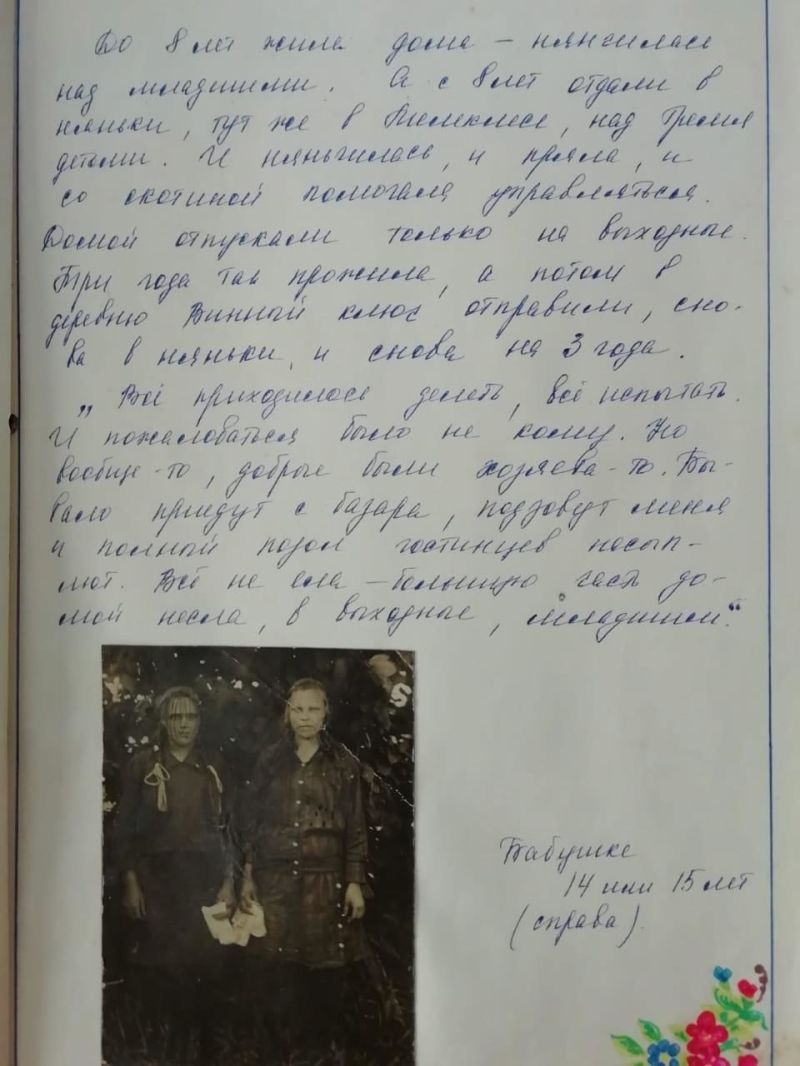 До 8 лет жила дома - нянчилась
над младшими. А с 8 лет отдали в
няньки, тут же в Мелекессе, над тремя
детьми. И нянчилась, и пряла, и
со скотиной помогала управляться.
Домой отпускали только на выходные.
Три года так прожила, а потом в
деревню Винный ключ отправили, сно-
ва в няньки, и снова на 3 года.
„Всё приходилось делать, всё испытать.
И пожаловаться было не кому. Но
вообще-то, добрые были хозяева-то. Бы-
вало придут с базара, подзовут меня
и полный подол гостинцев насып-
лют. Всё не ела - большую часть до-
мой несла, в выходные, младшим."
Бабушке
14 или 15 лет
(справа).